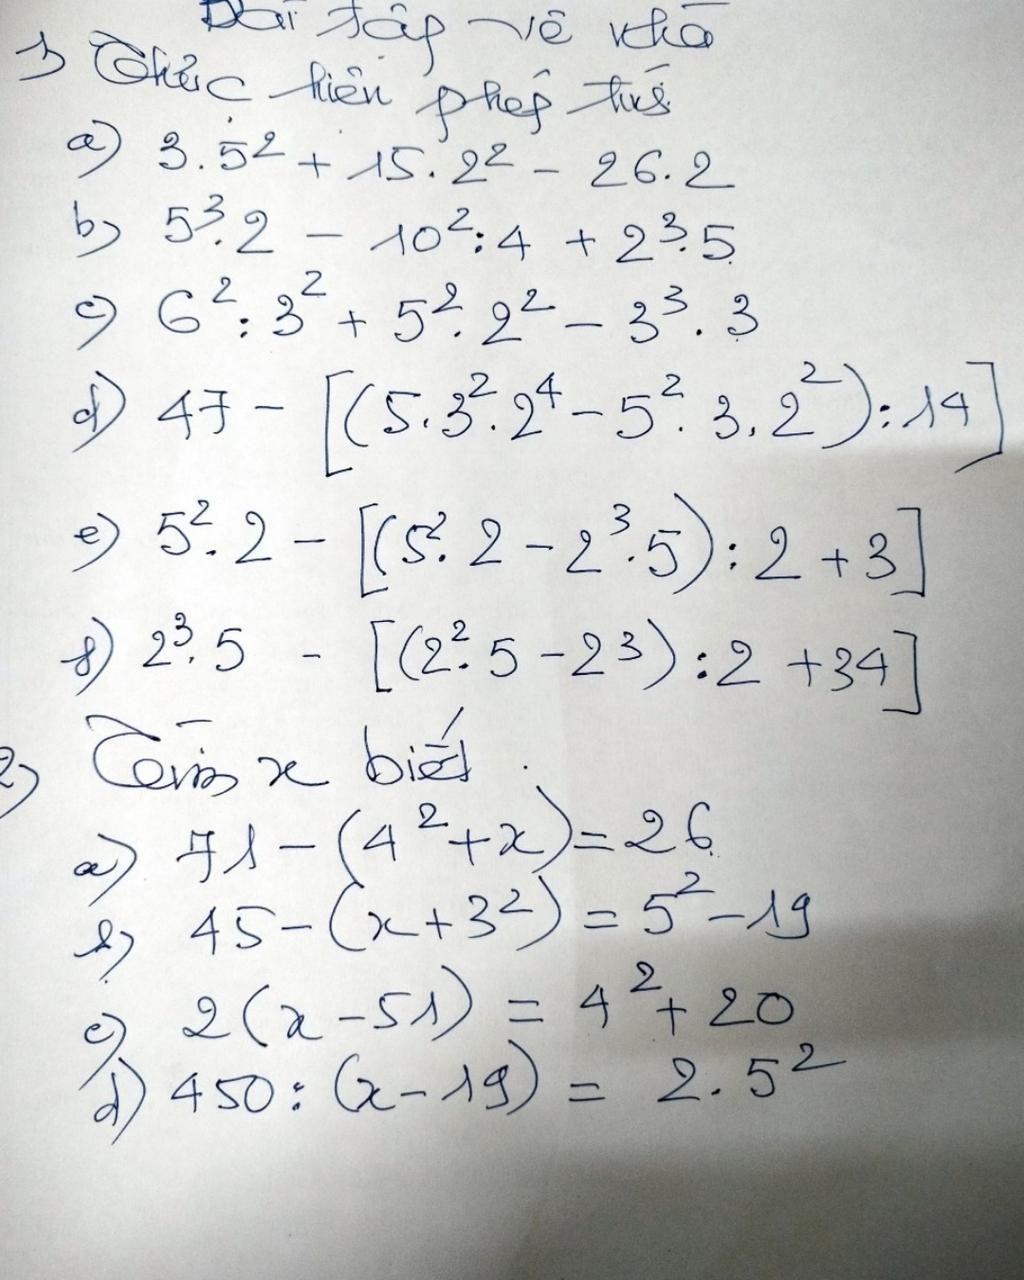 Bài tập về nhà
1) Thực hiện phép tính
a) 3.5² + 15.2² - 26.2
b) 5³.2 - 10²:4 + 2³.5
c) 6²:3² + 5².2² - 3³.3
d) 47 - [(5.3².2⁴ - 5².3.2²):14]
e) 5².2 - [(5².2 - 2³.5):2 + 3]
f) 2³.5 - [(2².5 - 2³):2 + 34]
2) Tìm x biết.
a) 71 - (4² + x) = 26
b) 45 - (x + 3²) = 5² - 19
c) 2(x - 51) = 4² + 20
d) 450:(x - 19) = 2.5²